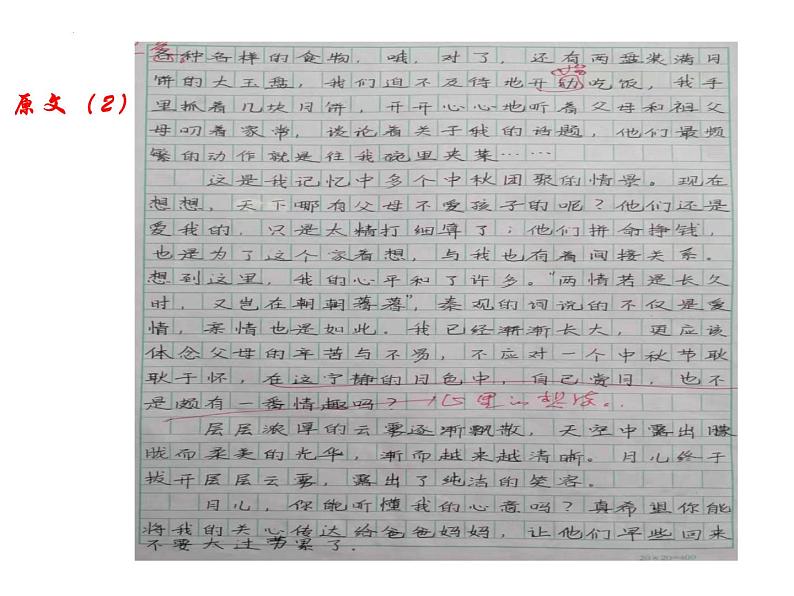 原文（2）
各种各样的食物，哦，对了，还有两盘装满月
饼的大玉盘，我们迫不及待地开动吃饭，我手
里抓着几块月饼，开开心心地听着父母和祖父
母叨着家常，谈论着关于我的话题，他们最频
繁的动作就是往我碗里夹菜……
这是我记忆中多个中秋团聚的情景。现在
想想，天下哪有父母不爱孩子的呢？他们还是
爱我的，只是太精打细算了；他们拼命挣钱，
也是为了这个家着想，与我也有着间接关系。
想到这里，我的心平和了许多。“两情若是长久
时，又岂在朝朝暮暮”，秦观的词说的不仅是爱
情，亲情也是如此。我已经渐渐长大，更应该
体念父母的辛苦与不易，不应对一个中秋节耿
耿于怀，在这宁静的月色中，自己赏月，也不
是颇有一番情趣吗？
层层浓厚的云雾逐渐飘散，天空中露出朦
胧而柔美的光华，渐而越来越清晰。月儿终于
拨开层层云雾，露出了纯洁的笑容。
月儿，你能听懂我的心意吗？真希望你能
将我的关心传达给爸爸妈妈，让他们早些回来
不要太过劳累了．
20×20=400